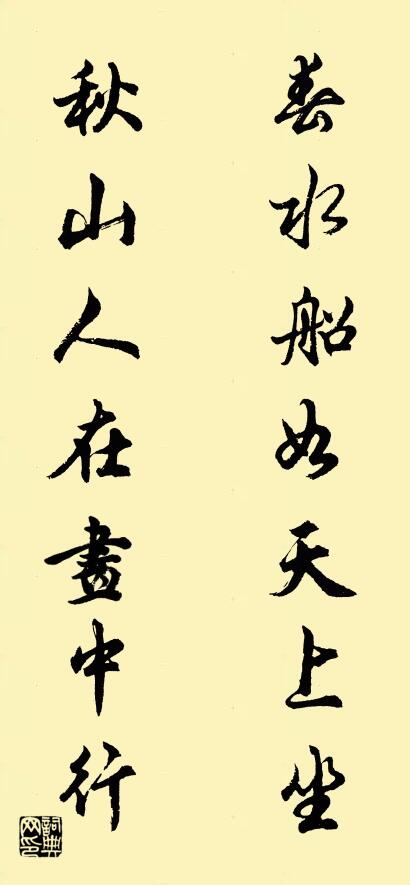 春水船如天上坐
秋山人在畫中行
詞典網印